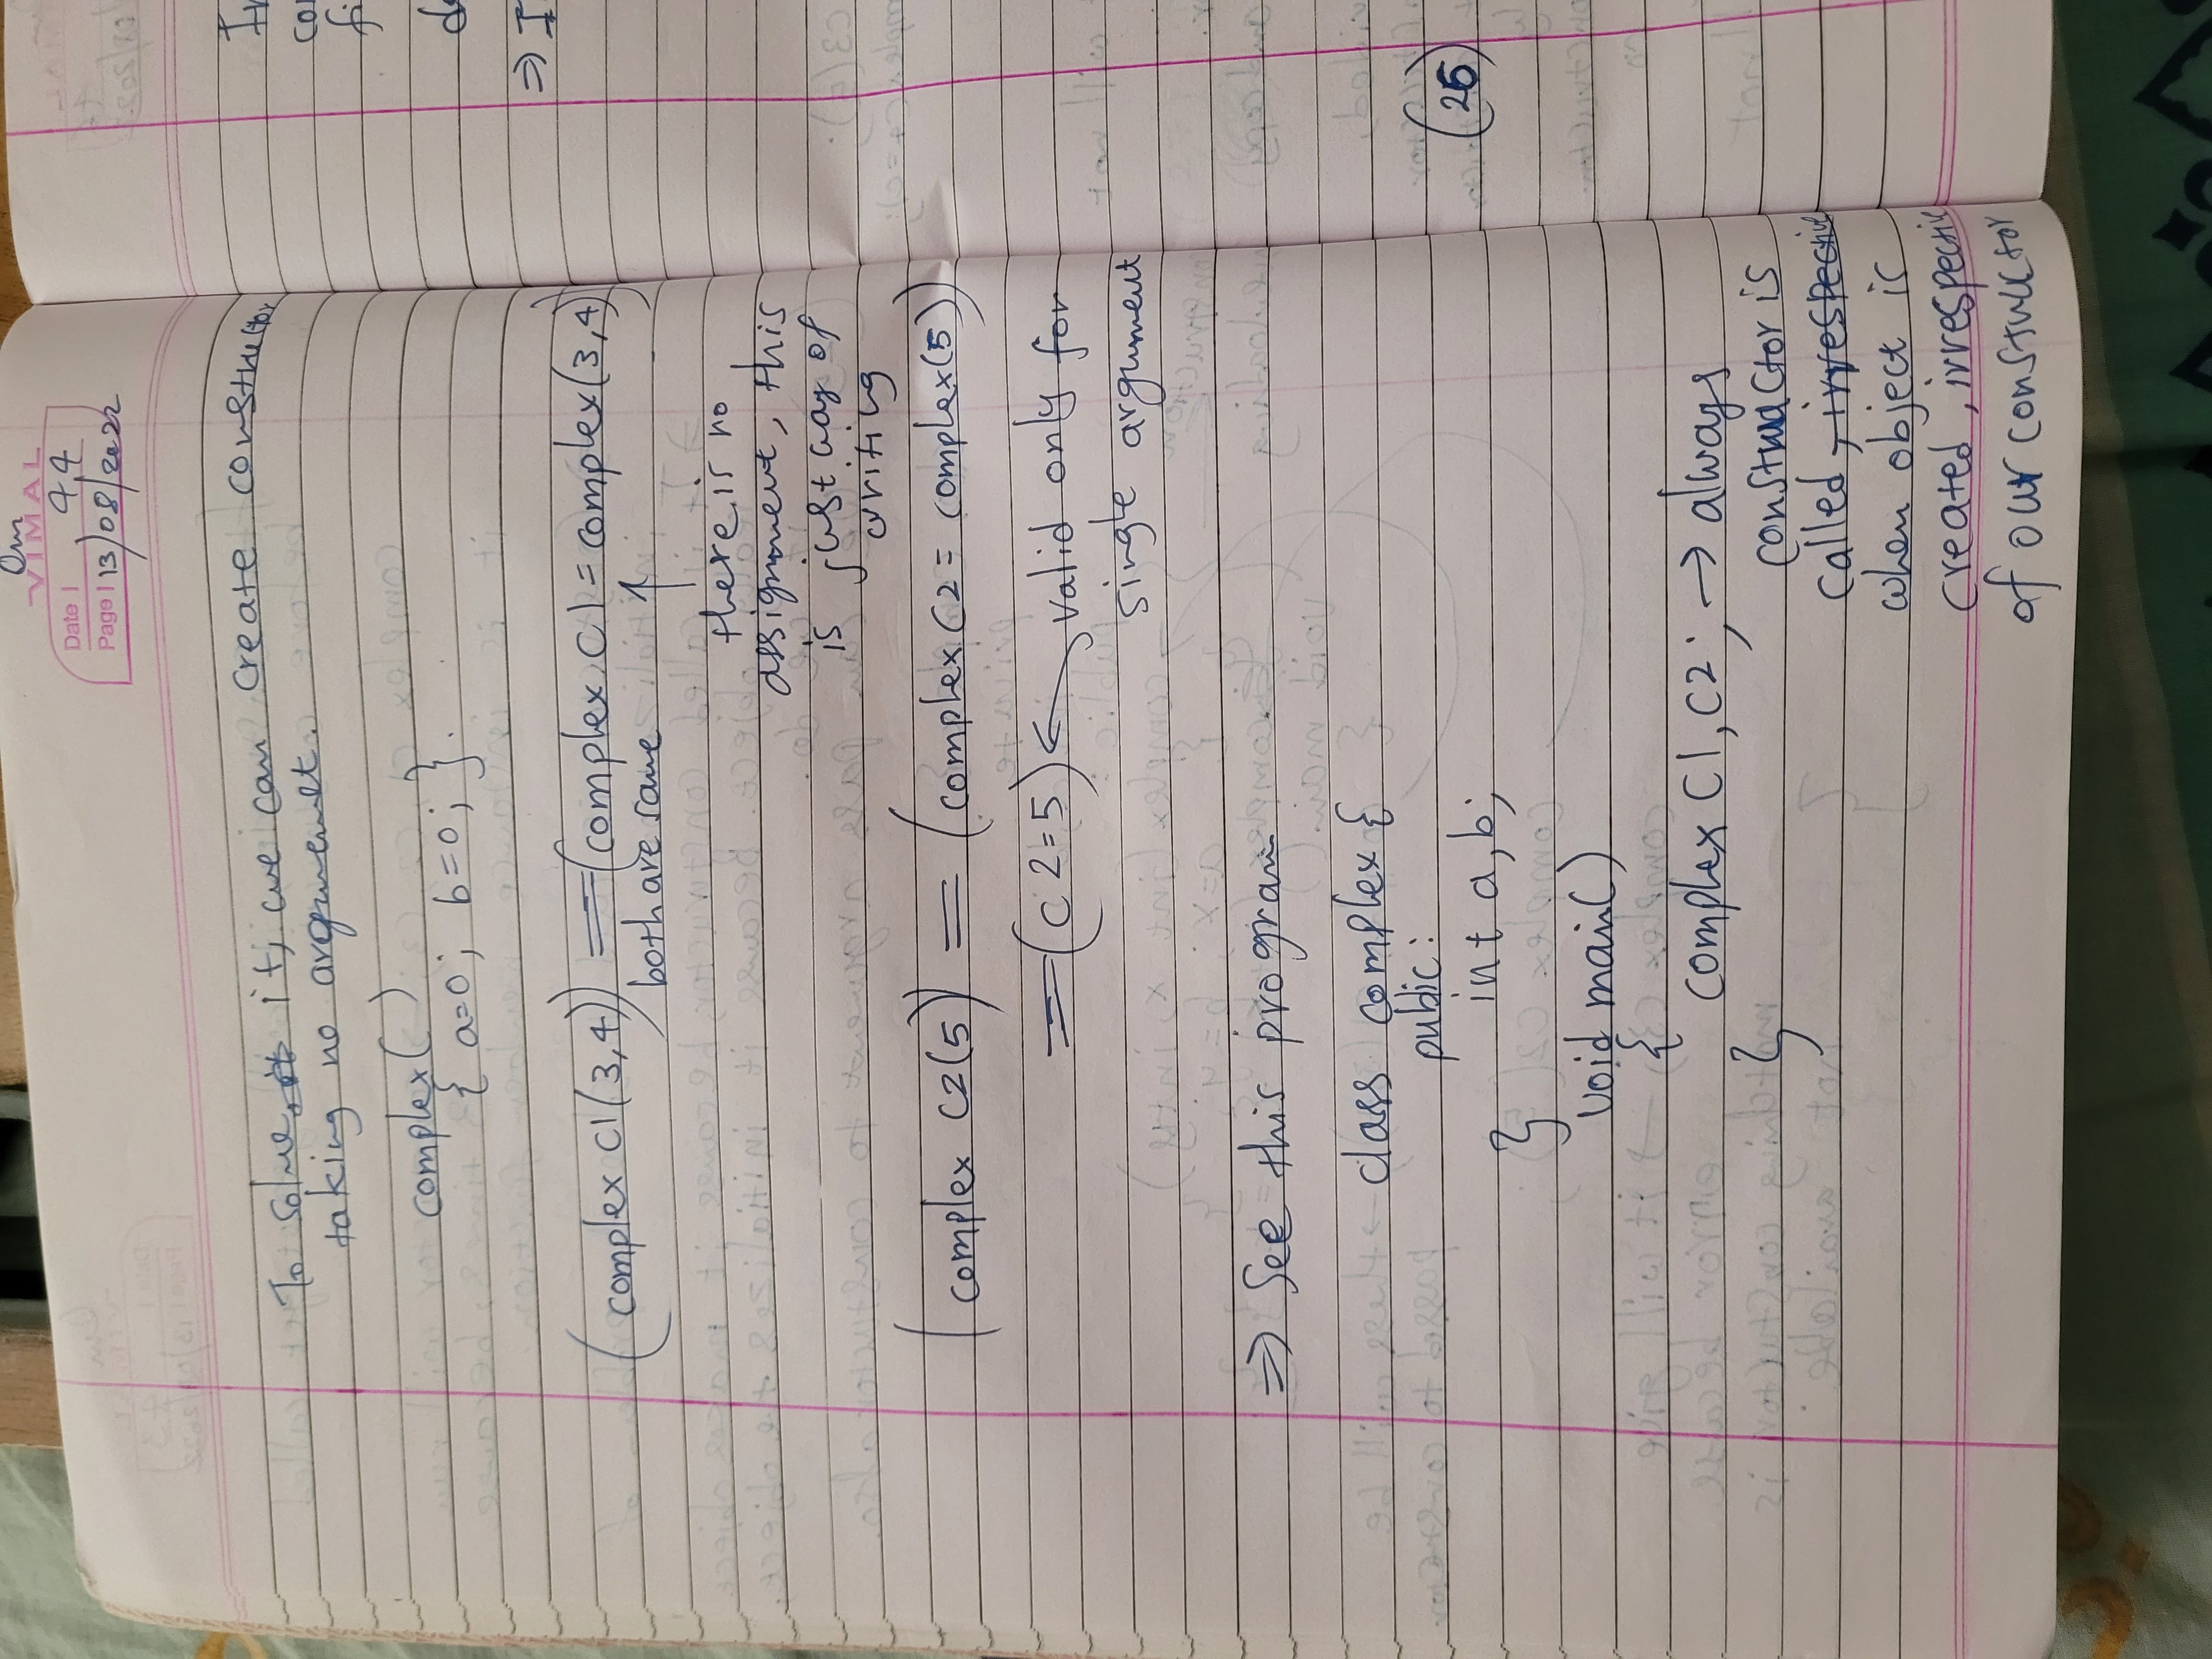 Om
VIMAL
Date | 44
Page | 13/08/2022
To solve, it, we can create constructor
taking no argument.
complex( )
{ a=0; b=0; }.
(complex C1(3,4)) == (complex C1 = complex(3,4)
both are same
there is no
assignment, this
is just way of
writing
(complex C2(5)) = (complex C2 = complex(5))
= (C2=5) ← valid only for
single argument
⇒ See this program
class complex {
public:
int a, b;
}
void main()
{
complex C1, C2; → always
}
constructor is
called, irrespective
when object is
created, irrespective
of our constructor
In
⇒ I
(26)